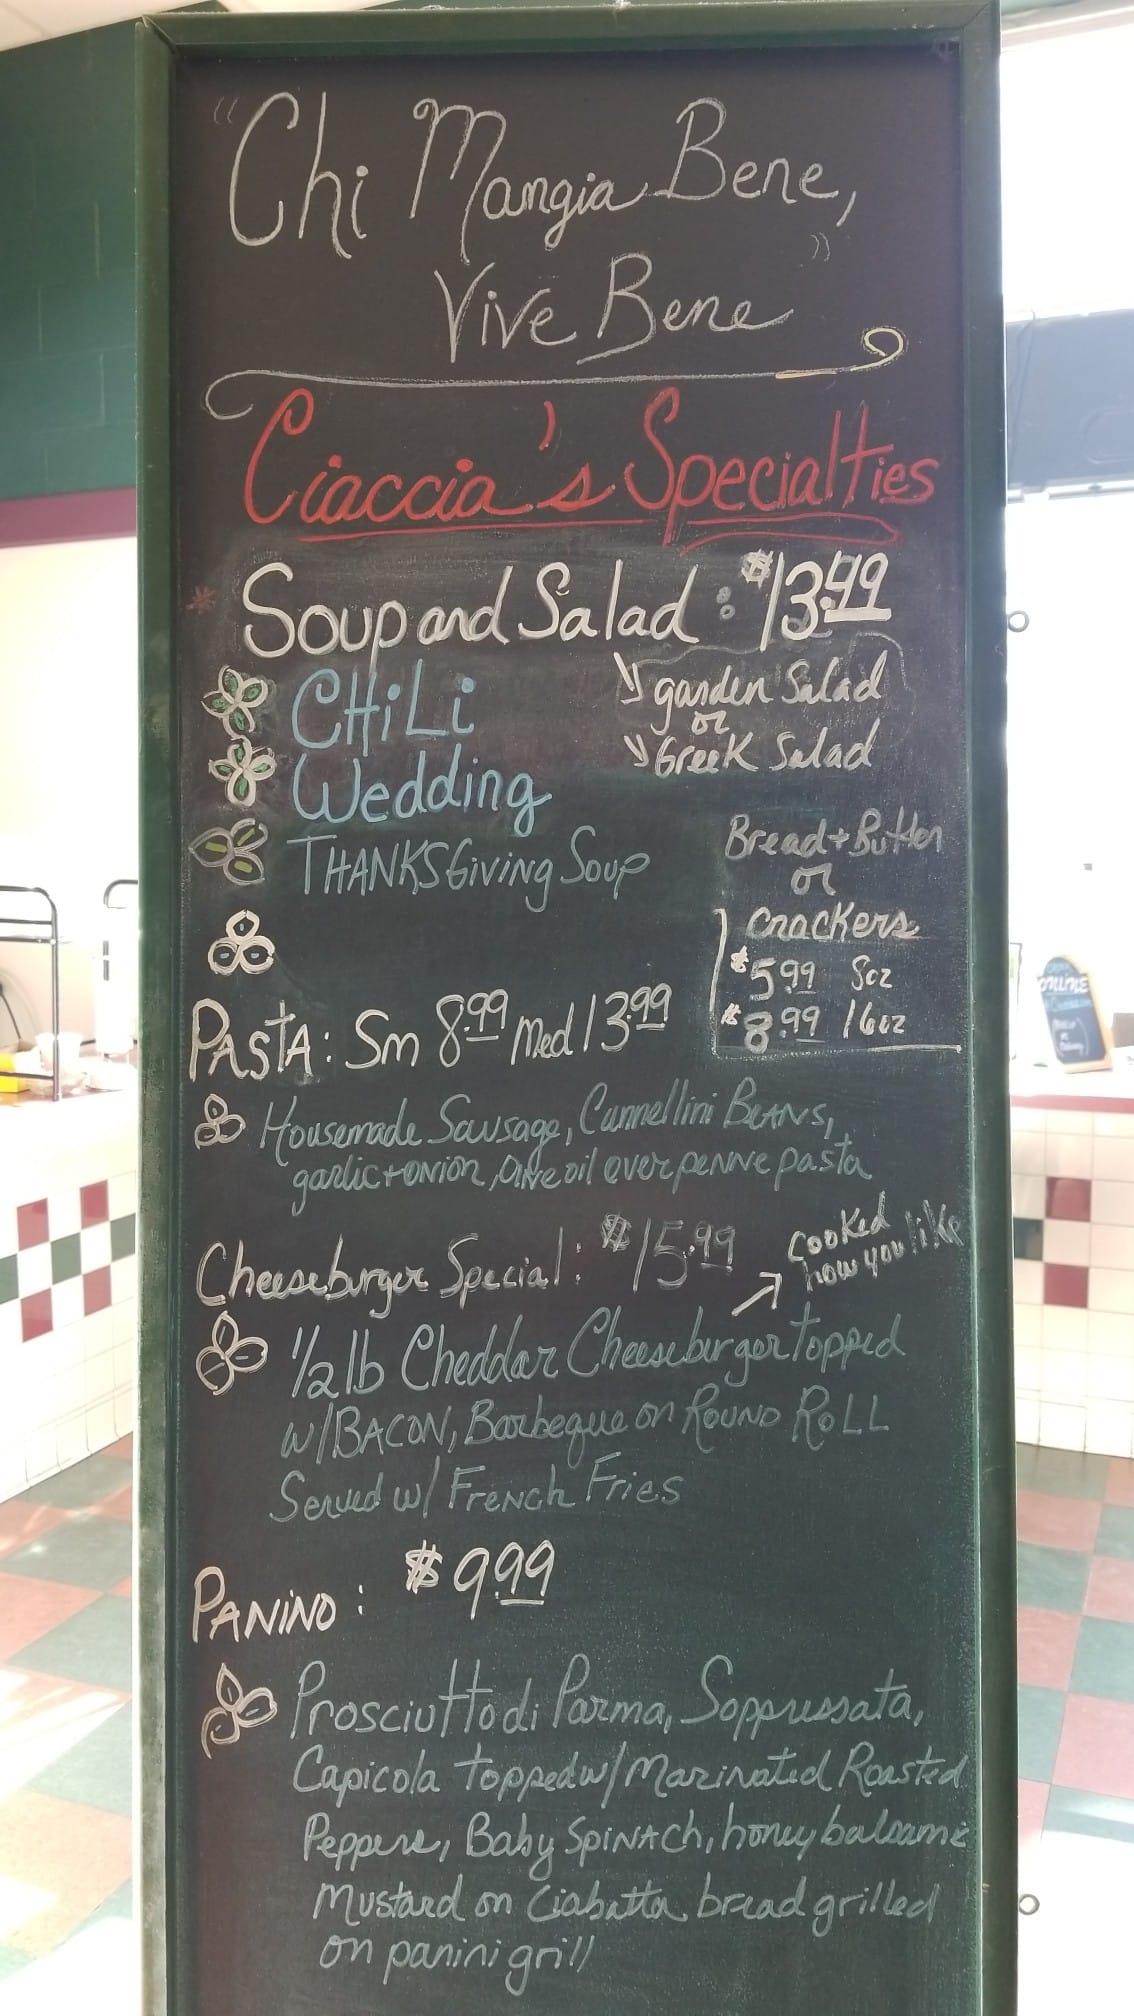 "Chi Mangia Bene,
Vive Bene"
Ciaccia's Specialties
* Soup and Salad: $13.49
CHiLi
↘ garden Salad
or
↘ Greek Salad
Wedding
THANKSGiving Soup
Bread + Butter
or
Crackers
$5.99 8oz
$8.99 16oz
PASTA: Sm 8.99 Med 13.99
Housemade Sausage, Cannellini BEANS,
garlic + onion, olive oil over penne pasta
Cheeseburger Special: $15.99
cooked
how you like
1/2 lb Cheddar Cheeseburger topped
w/BACON, Barbeque on ROUND ROLL
Served w/ French Fries
PANINO: $9.99
Prosciutto di Parma, Soppressata,
Capicola topped w/ Marinated Roasted
Peppers, Baby SPINACH, honey balsamic
Mustard on Ciabatta bread grilled
on panini grill